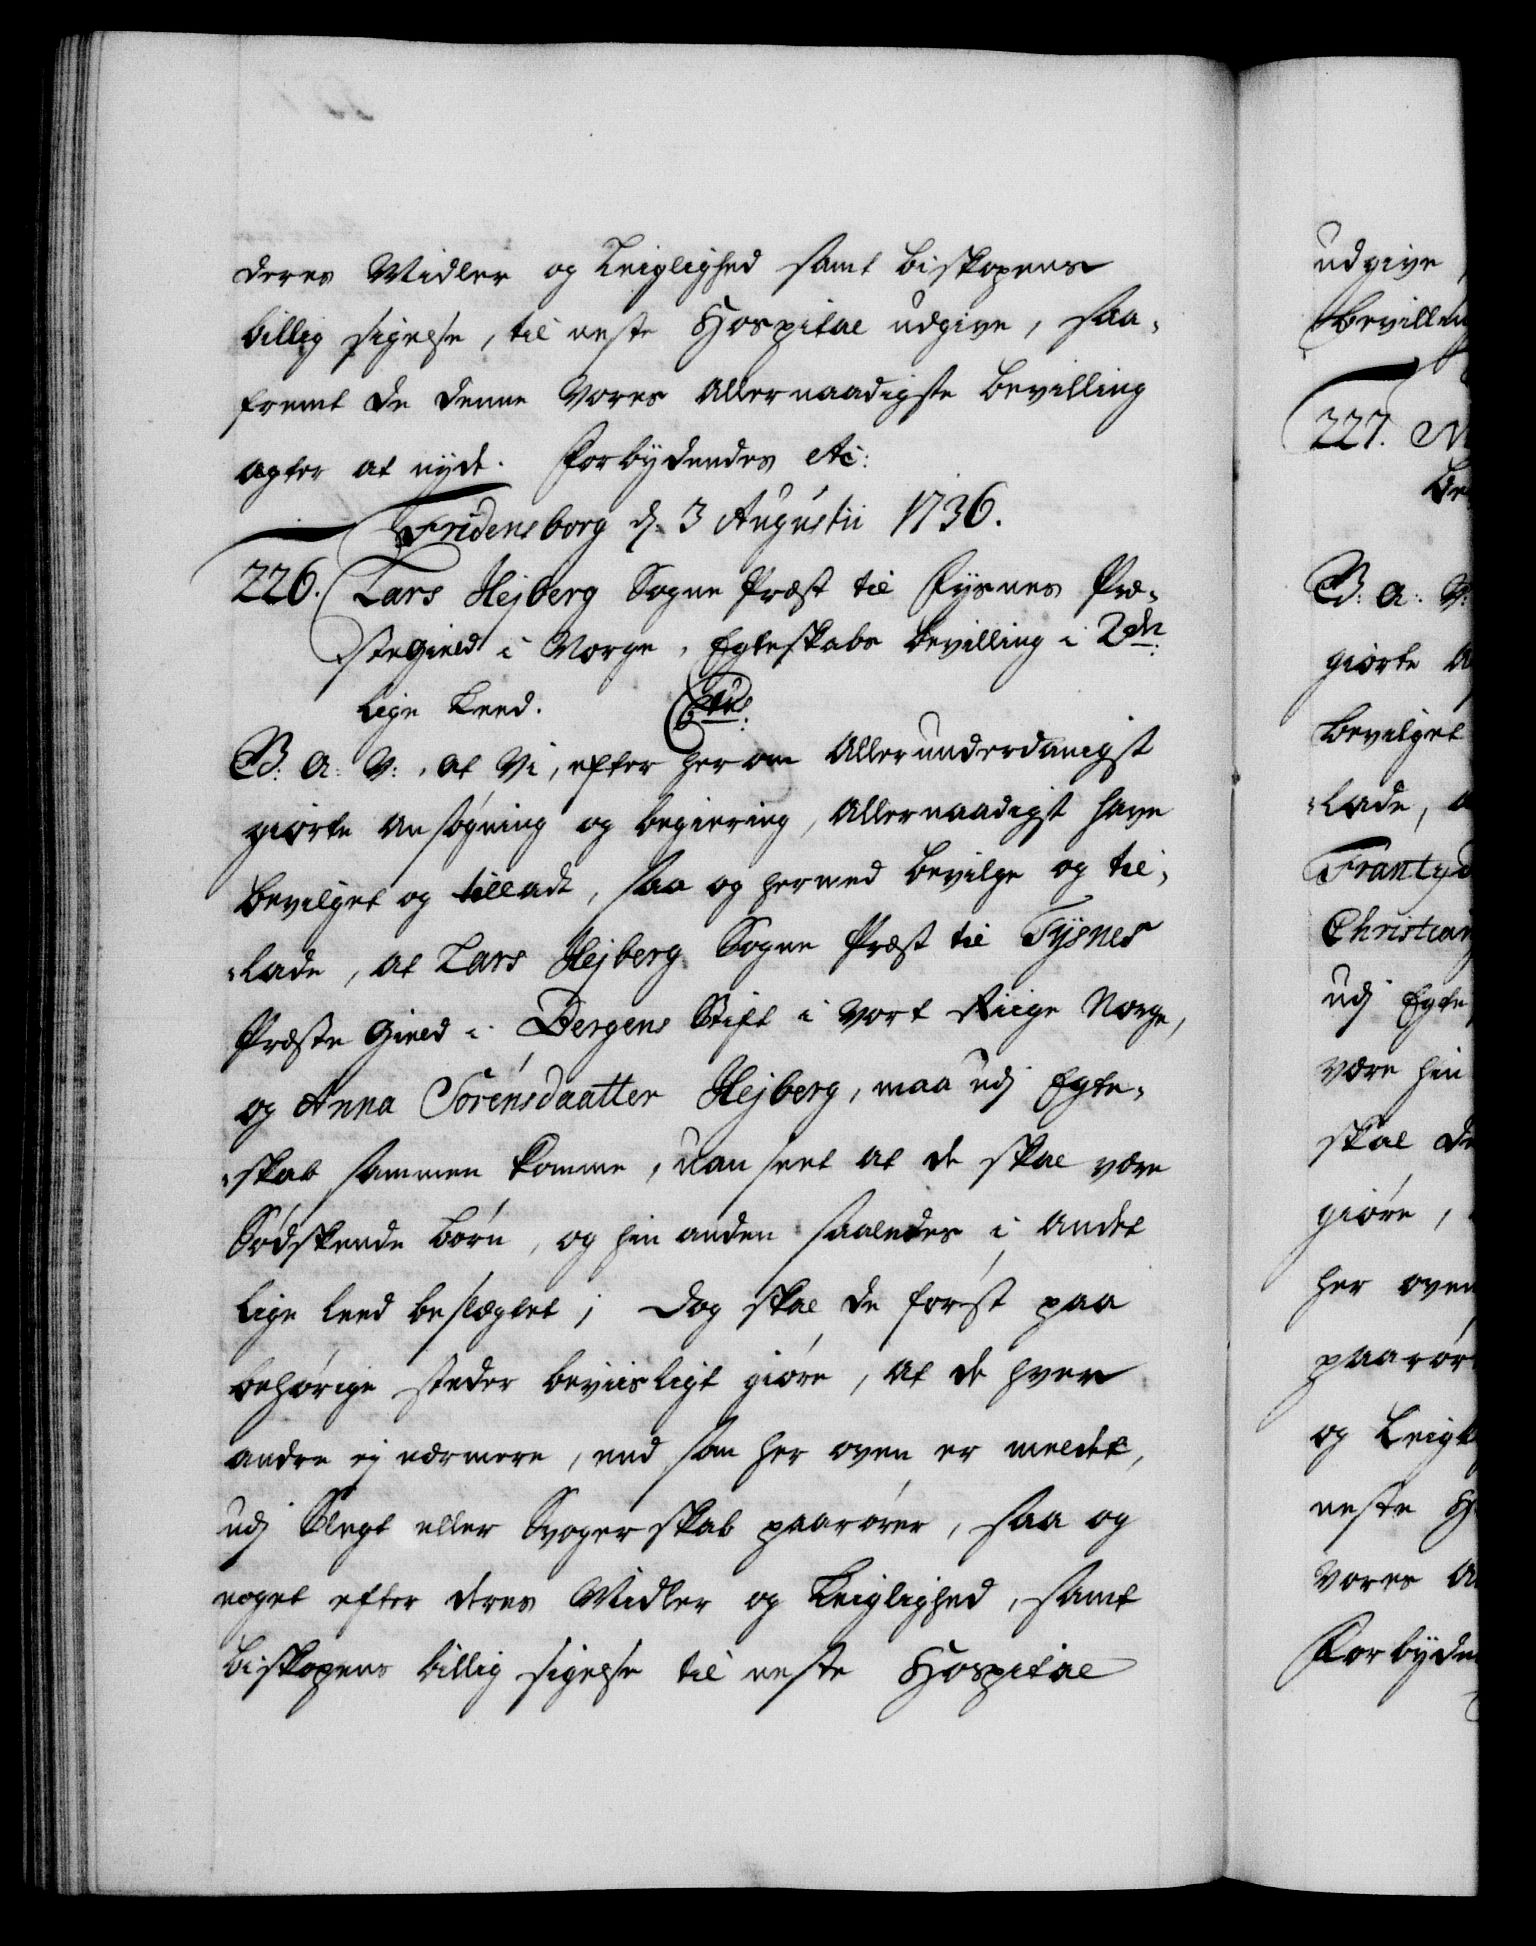 deres Midler og Leiglighed samt biskopens
billig sigelse, til neste Hospital udgive, saa-
fremt de denne Vores allernaadigste bevilling
agter at nyde. Forbydendes etc:
Fridensborg d. 3 Augustii 1736.
226. Lars Hejberg Sogne Præst til Tysnes Præ-
stegield i Norge, Egteskabs bevilling i 2den
lige Leed.
B: A: V:, at Vi, efter herom allerunderdanigst
giorte ansøgning og begiering, allernaadigst have
bevilget og tilladt, saa og hermed bevilge og til-
lade, at Lars Hejberg Sogne Præst til Tysnes
Præste Gield i Bergens Stift i Vort Riige Norge,
og Anna Sørensdaatter Hejberg, maa udj Egte-
skab sammen komme, uanseet at de skal være
Sødskende børn, og hin anden saaledes i andet
lige leed beslægtet; Dog skal de først paa
behørige steder beviisligt giøre, at de hver
andre ej nærmere, end som her oven er meldet,
udj Slegt eller Svogerskab paarører, saa og
noget efter deres Midler og Leiglighed, samt
biskopens billig sigelse til neste Hospital
udgive
bevilling
227.
B: A: V:
giorte
bevilget
lade,
Christian
udj Egte
være hin
skal de
giøre,
her oven
paarør
og Leigl
neste H
Vores
Forbyden